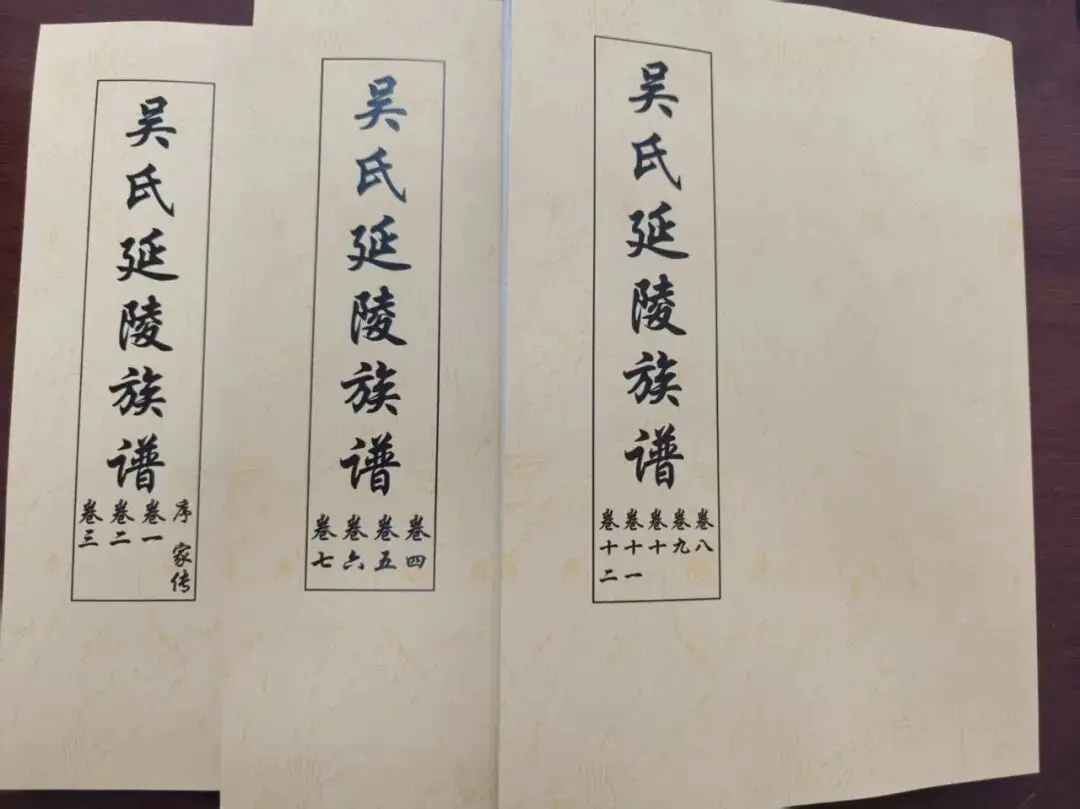 吴氏延陵族谱
序 家传
卷一
卷二
卷三
吴氏延陵族谱
卷四
卷五
卷六
卷七
吴氏延陵族谱
卷八
卷九
卷十
卷十一
卷十二